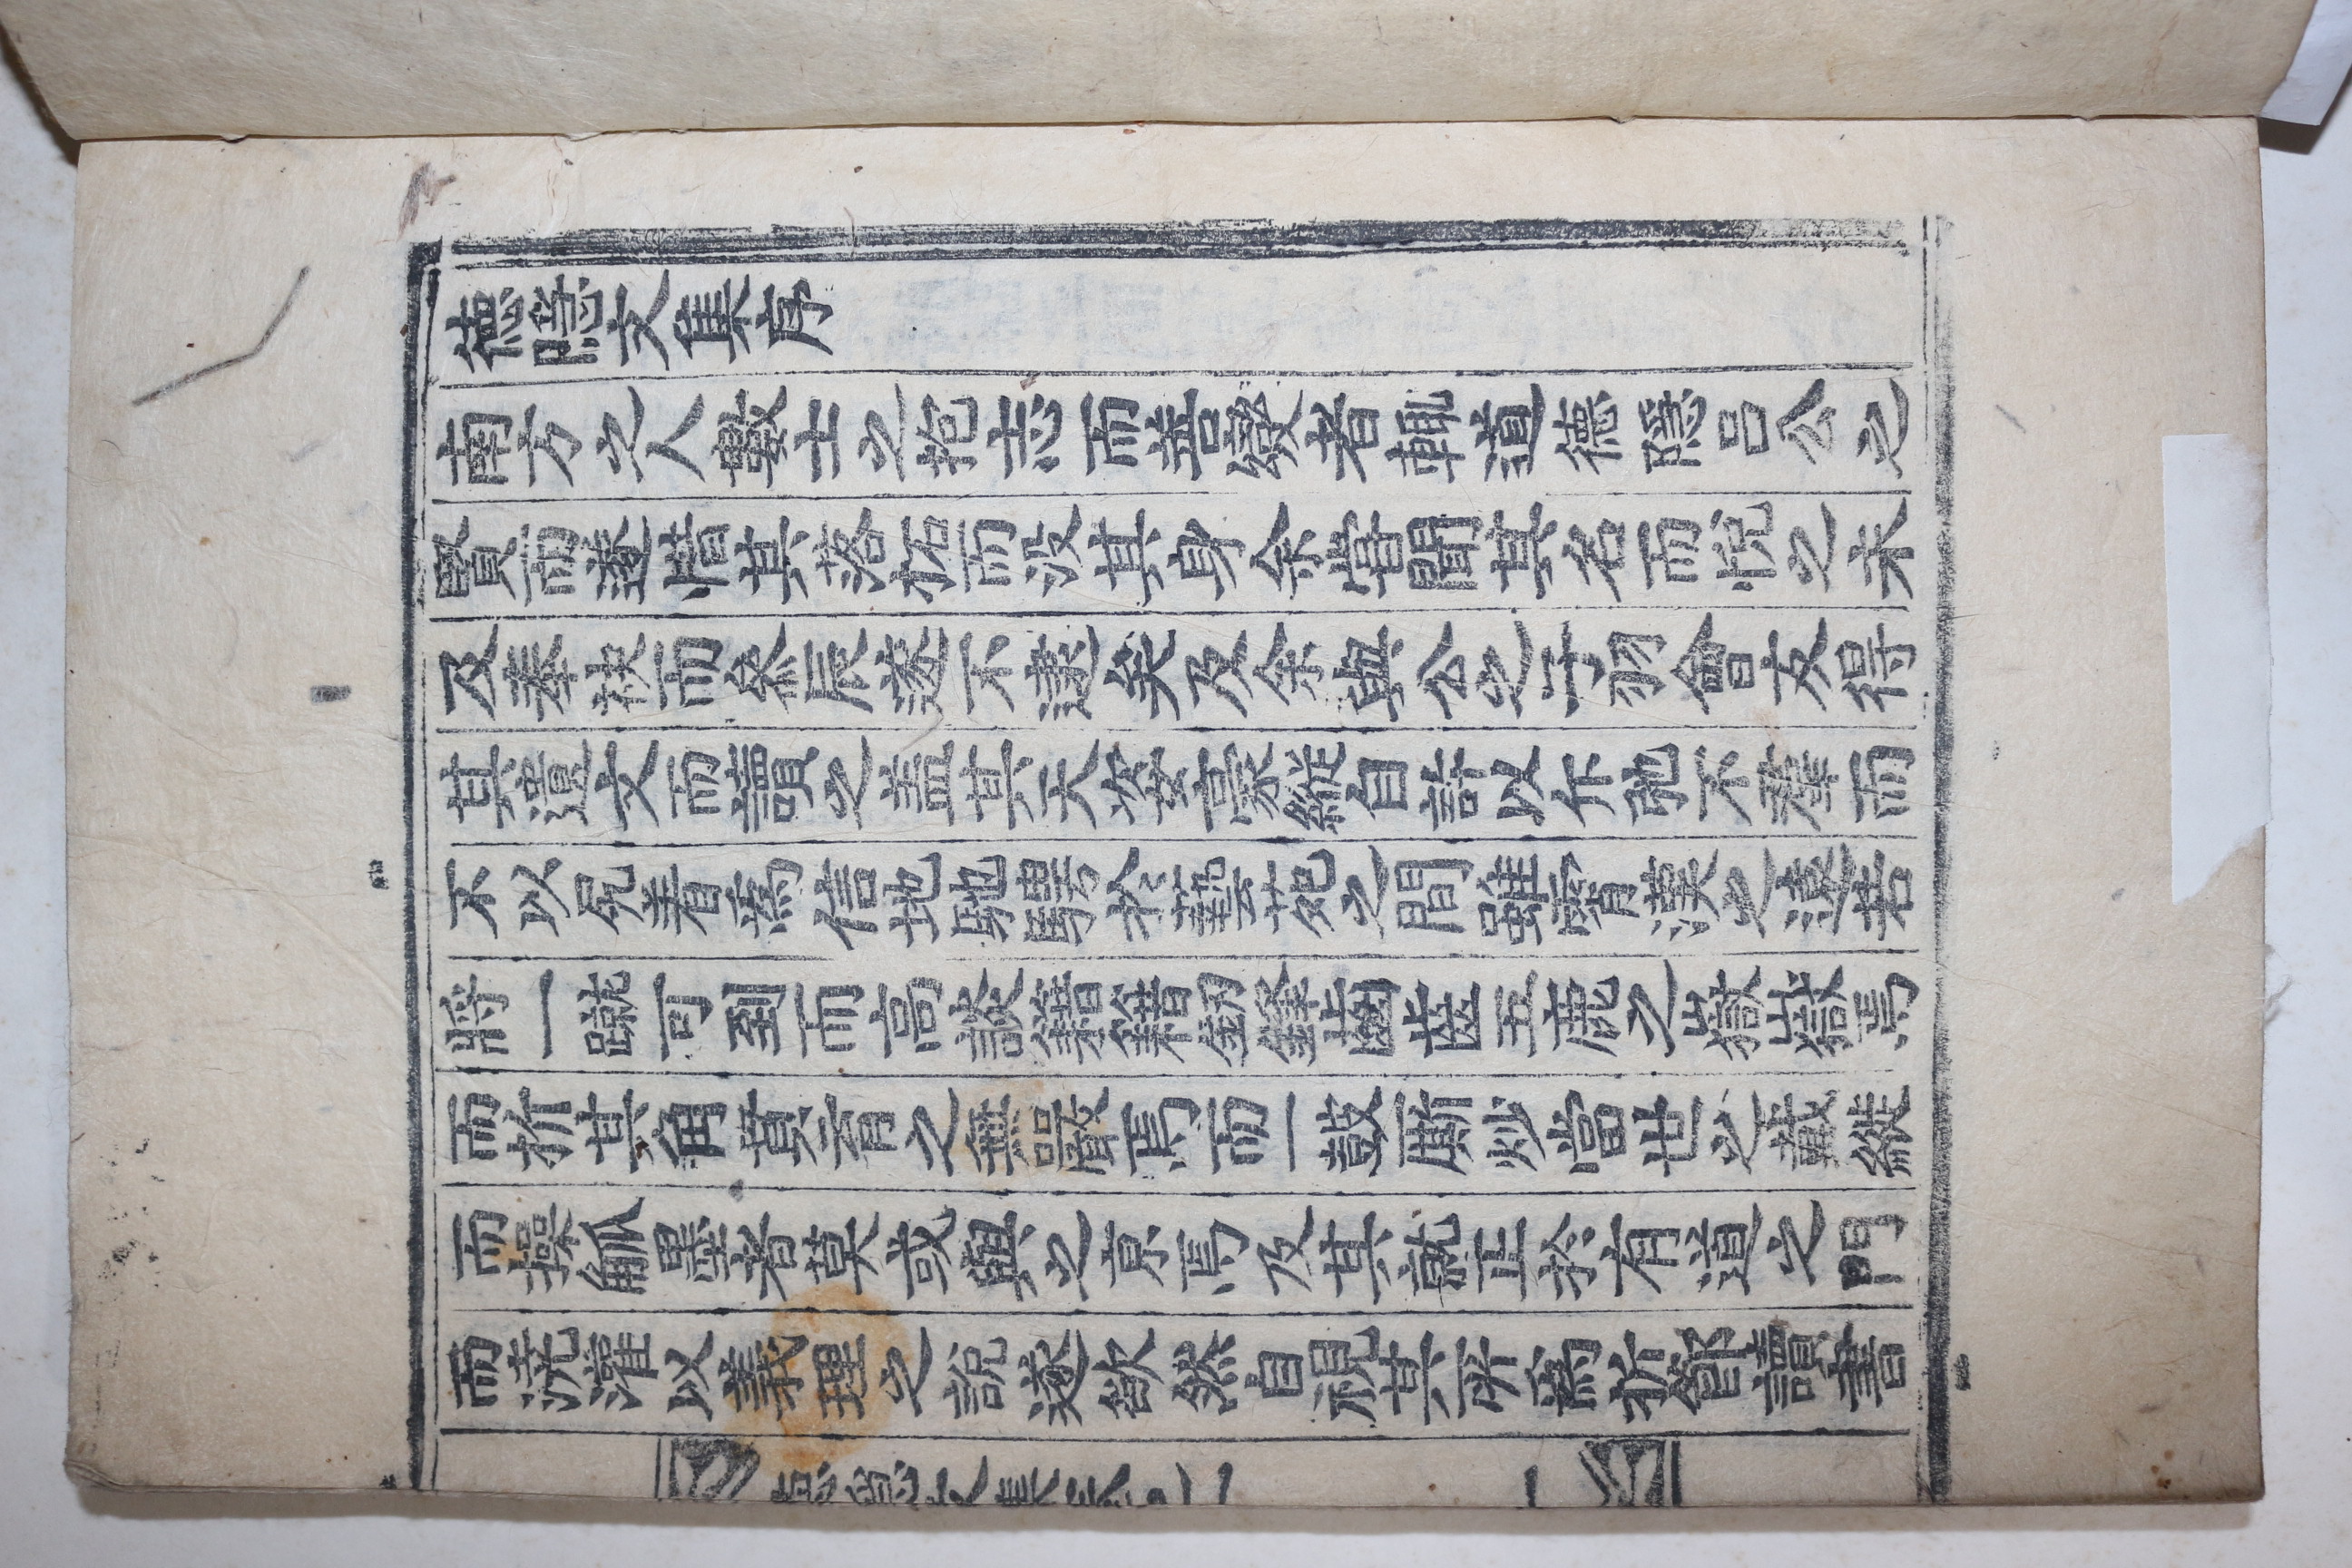 德隱文集序
南方之人數士之抱志而善變者輒道德隱呂公之
賢而遂惜其落拓而没其身余嘗聞其名而悅之未
及奉袂而參辰遂不逮矣及余與公之子羽會友得
其遺文而讀之盖其天姿豪縱自許以斥弛不羣而
不以尻着爲信地馳騁於藝苑之間雖霄漢之遠若
將一蹴可到而高談籍籍釼鋒齒齒五鹿之嶽嶽焉
而折其角賁育之無嚴焉而一鼓厮炒當世以戴縱
而操觚墨者莫或與之京焉及其就正於有道之門
而澆灌以義理之說遂欿然自視其所爲折節讀書
德隱文集卷之一
一